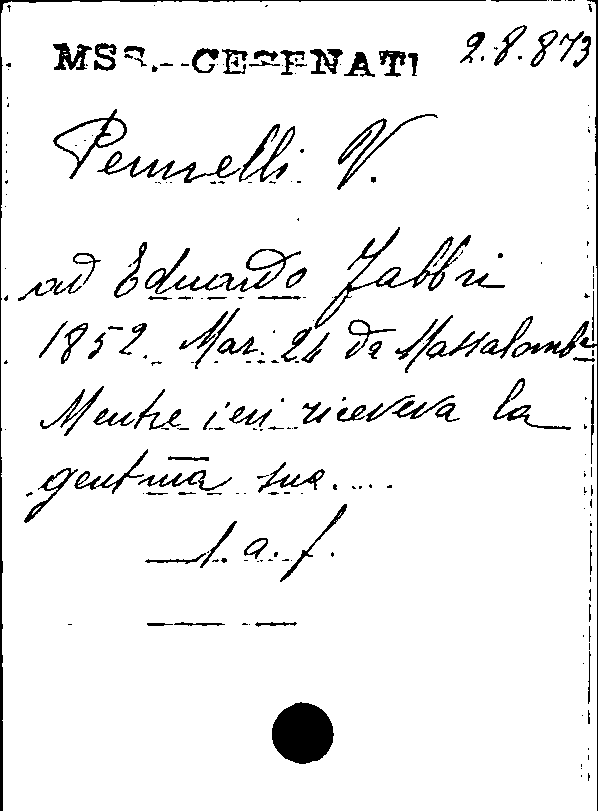 MSS. CESENATI 2.8.873
Perucelli V.
ad Eduardo Fabbri
1852. Mar. 24 da Massalomb.
Mentre ieri riceveva la
gent.ma sua....
l. a. f.